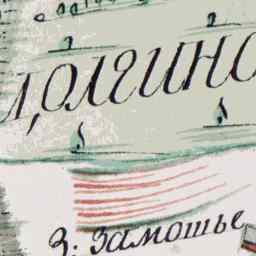 Долгино
З: Замошье